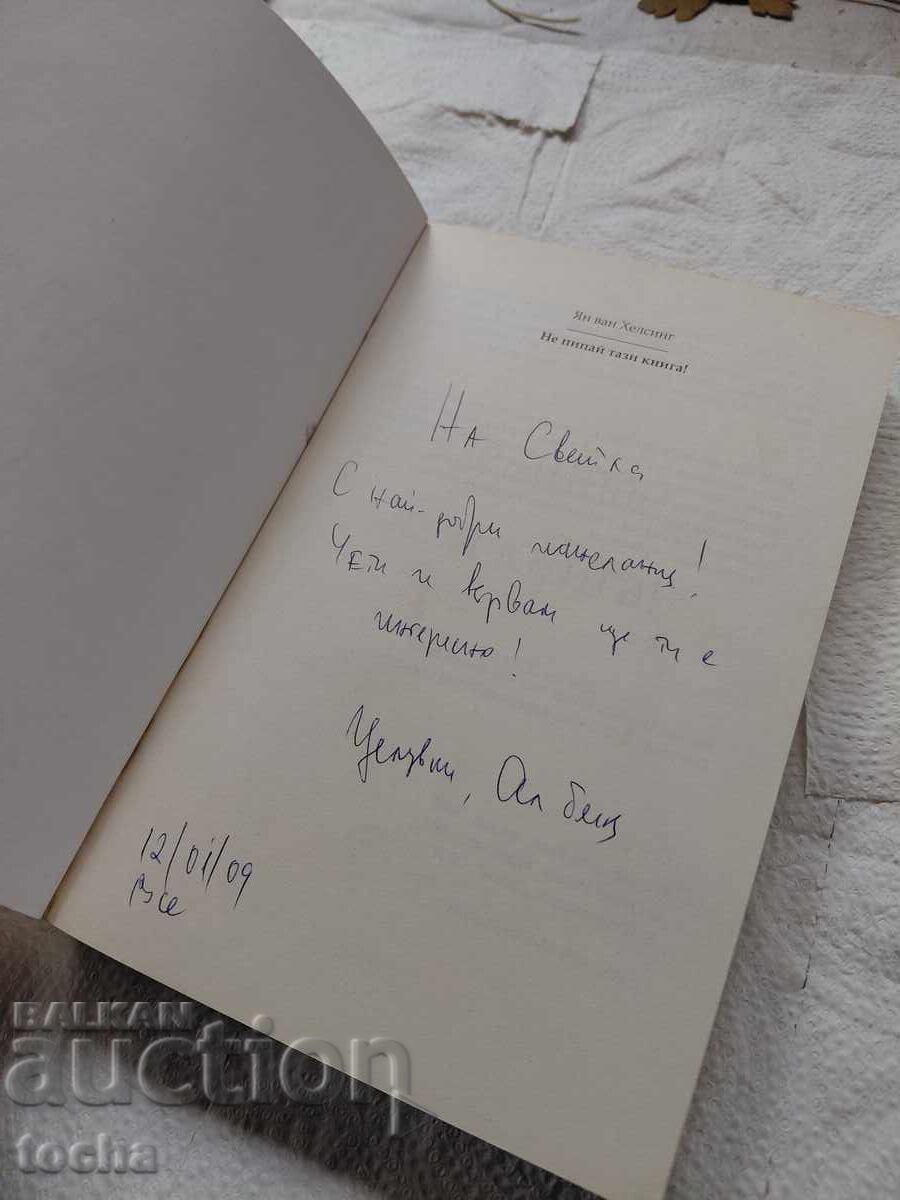 Ян ван Хелсинг
Не пипай тази книга!
На Светла
С най-добри пожелания!
Чети и вярвам ще ти е
интересно!
Целувки,
12/01/09
Русе
BALKAN
auction
tocha